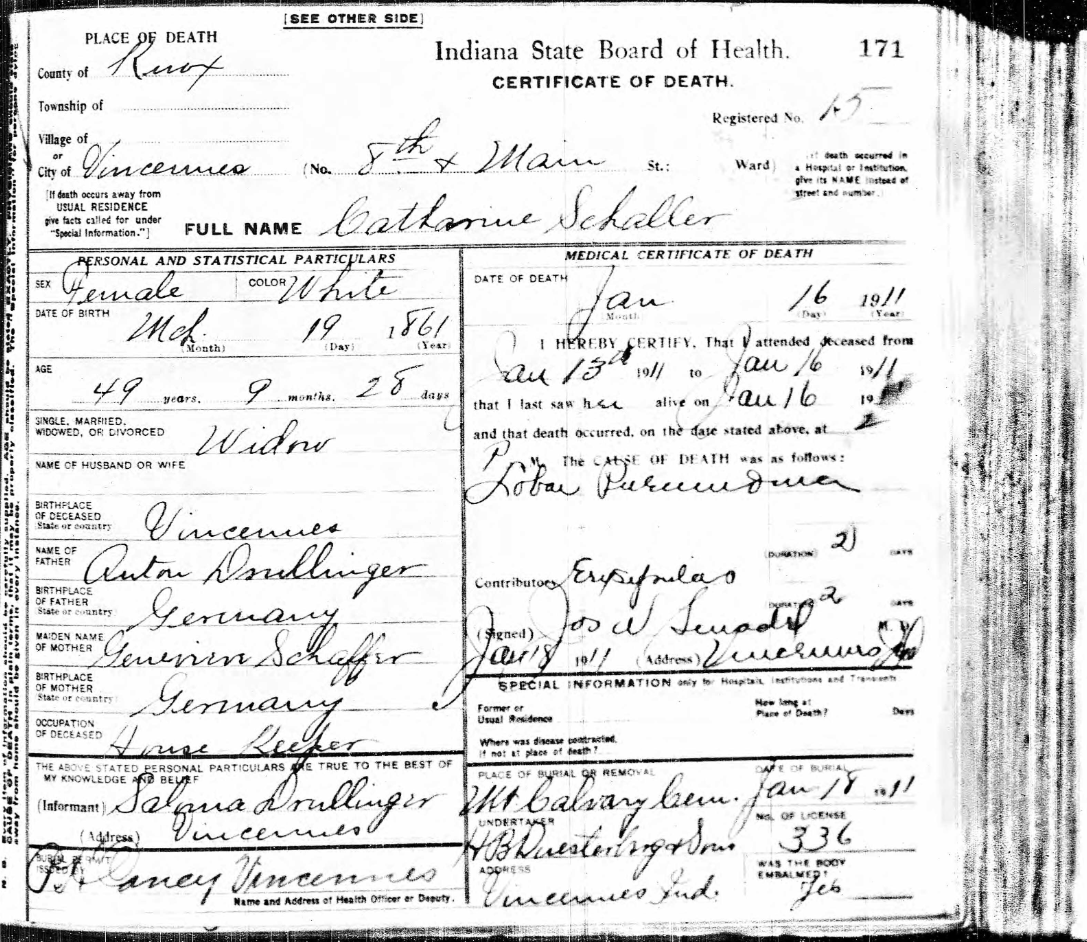 [SEE OTHER SIDE]
PLACE OF DEATH
Indiana State Board of Health. 171
County of Knox
CERTIFICATE OF DEATH.
Township of
Registered No. 15
Village of
or
City of Vincennes (No. 8th & Main St.; Ward)
death occurred in
a Hospital or Institution,
give its NAME instead of
street and number.]
[If death occurs away from
USUAL RESIDENCE
give facts called for under
"Special Information."]
FULL NAME Catharine Schaller
PERSONAL AND STATISTICAL PARTICULARS
SEX Female COLOR White
DATE OF BIRTH
Mch 19 1861
(Month) (Day) (Year)
AGE
49 years, 9 months, 28 days
SINGLE, MARRIED,
WIDOWED, OR DIVORCED Widow
NAME OF HUSBAND OR WIFE
BIRTHPLACE
OF DECEASED
State or country Vincennes
NAME OF
FATHER Anton Drullinger
BIRTHPLACE
OF FATHER
State or country Germany
MAIDEN NAME
OF MOTHER Genevieve Schaffer
BIRTHPLACE
OF MOTHER
State or country Germany
OCCUPATION
OF DECEASED House Keeper
THE ABOVE STATED PERSONAL PARTICULARS ARE TRUE TO THE BEST OF
MY KNOWLEDGE AND BELIEF
(Informant) Saloma Drullinger
(Address) Vincennes
BURIAL PERMIT
ISSUED BY
Caney Vincennes
Name and Address of Health Officer or Deputy.
MEDICAL CERTIFICATE OF DEATH
DATE OF DEATH
Jan 16 1911
(Month) (Day) (Year)
I HEREBY CERTIFY, That I attended deceased from
Jan 13th 1911 to Jan 16 1911
that I last saw her alive on Jan 16 191
and that death occurred, on the date stated above, at 2
P. M. The CAUSE OF DEATH was as follows:
Lobar Pneumonia
(DURATION) 2 DAYS
Contributory Erysipelas
DURATION 2 DAYS
(Signed) Jos M. D.
Jan 18 1911 (Address) Vincennes
SPECIAL INFORMATION only for Hospitals, Institutions and Transients
Former or
Usual Residence
How long at
Place of Death? Days
Where was disease contracted,
if not at place of death?
PLACE OF BURIAL OR REMOVAL DATE OF BURIAL
Mt Calvary Cem. Jan 18 1911
UNDERTAKER NO. OF LICENSE
H B Duesterberg & Sons 336
ADDRESS
Vincennes Ind.
WAS THE BODY
EMBALMED?
Yes